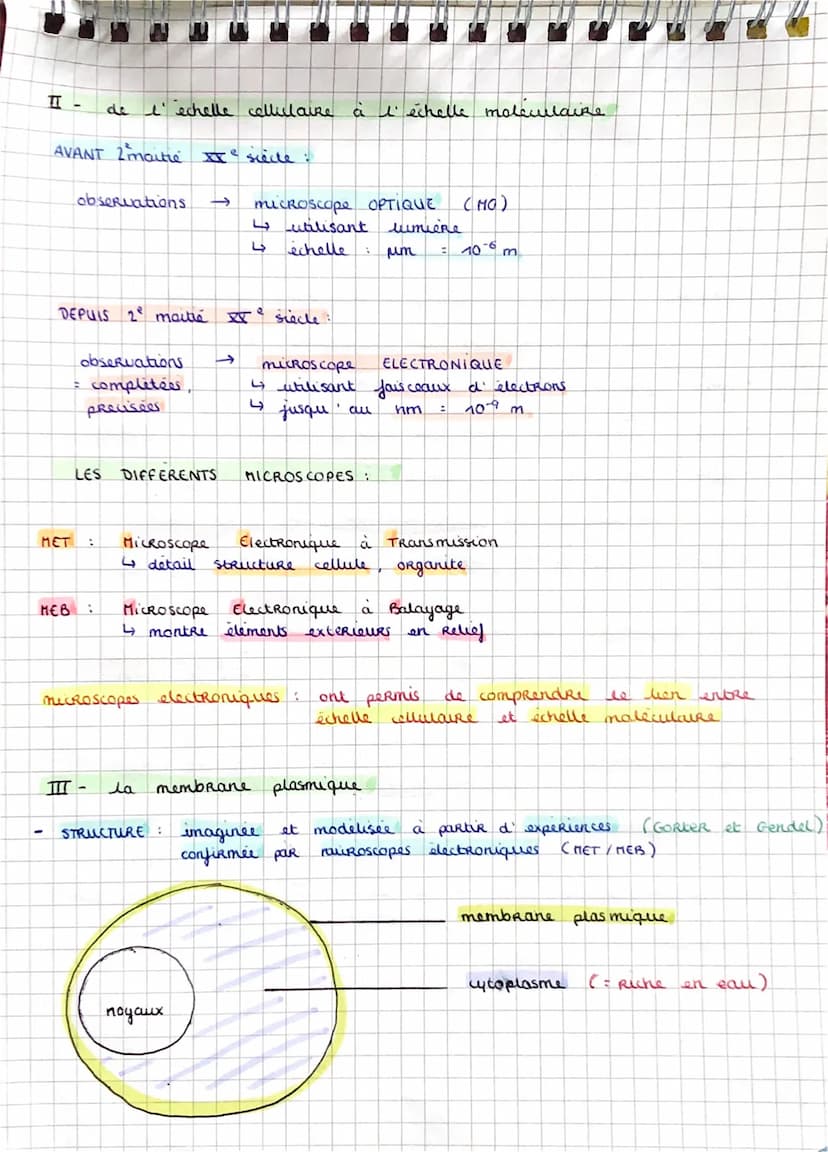 II - de l'échelle cellulaire à l'échelle moléculaire
AVANT 2e moitié XXe siècle :
observations → microscope OPTIQUE (MO)
↳ utilisant lumière
↳ échelle : µm = 10⁻⁶ m
DEPUIS 2e moitié XXe siècle :
observations → microscope ELECTRONIQUE
= complétées, ↳ utilisant faisceaux d'électrons
précisées ↳ jusqu'au nm = 10⁻⁹ m
LES DIFFÉRENTS MICROSCOPES :
MET : Microscope Electronique à Transmission
↳ détail structure cellule, organite
MEB : Microscope Electronique à Balayage
↳ montre éléments extérieurs en relief
microscopes électroniques : ont permis de comprendre le lien entre
échelle cellulaire et échelle moléculaire
III - la membrane plasmique
- STRUCTURE : imaginée et modélisée à partir d'expériences (GORTER et Gendel)
confirmée par microscopes électroniques (MET / MEB)
membrane plasmique
cytoplasme (= Riche en eau)
noyaux